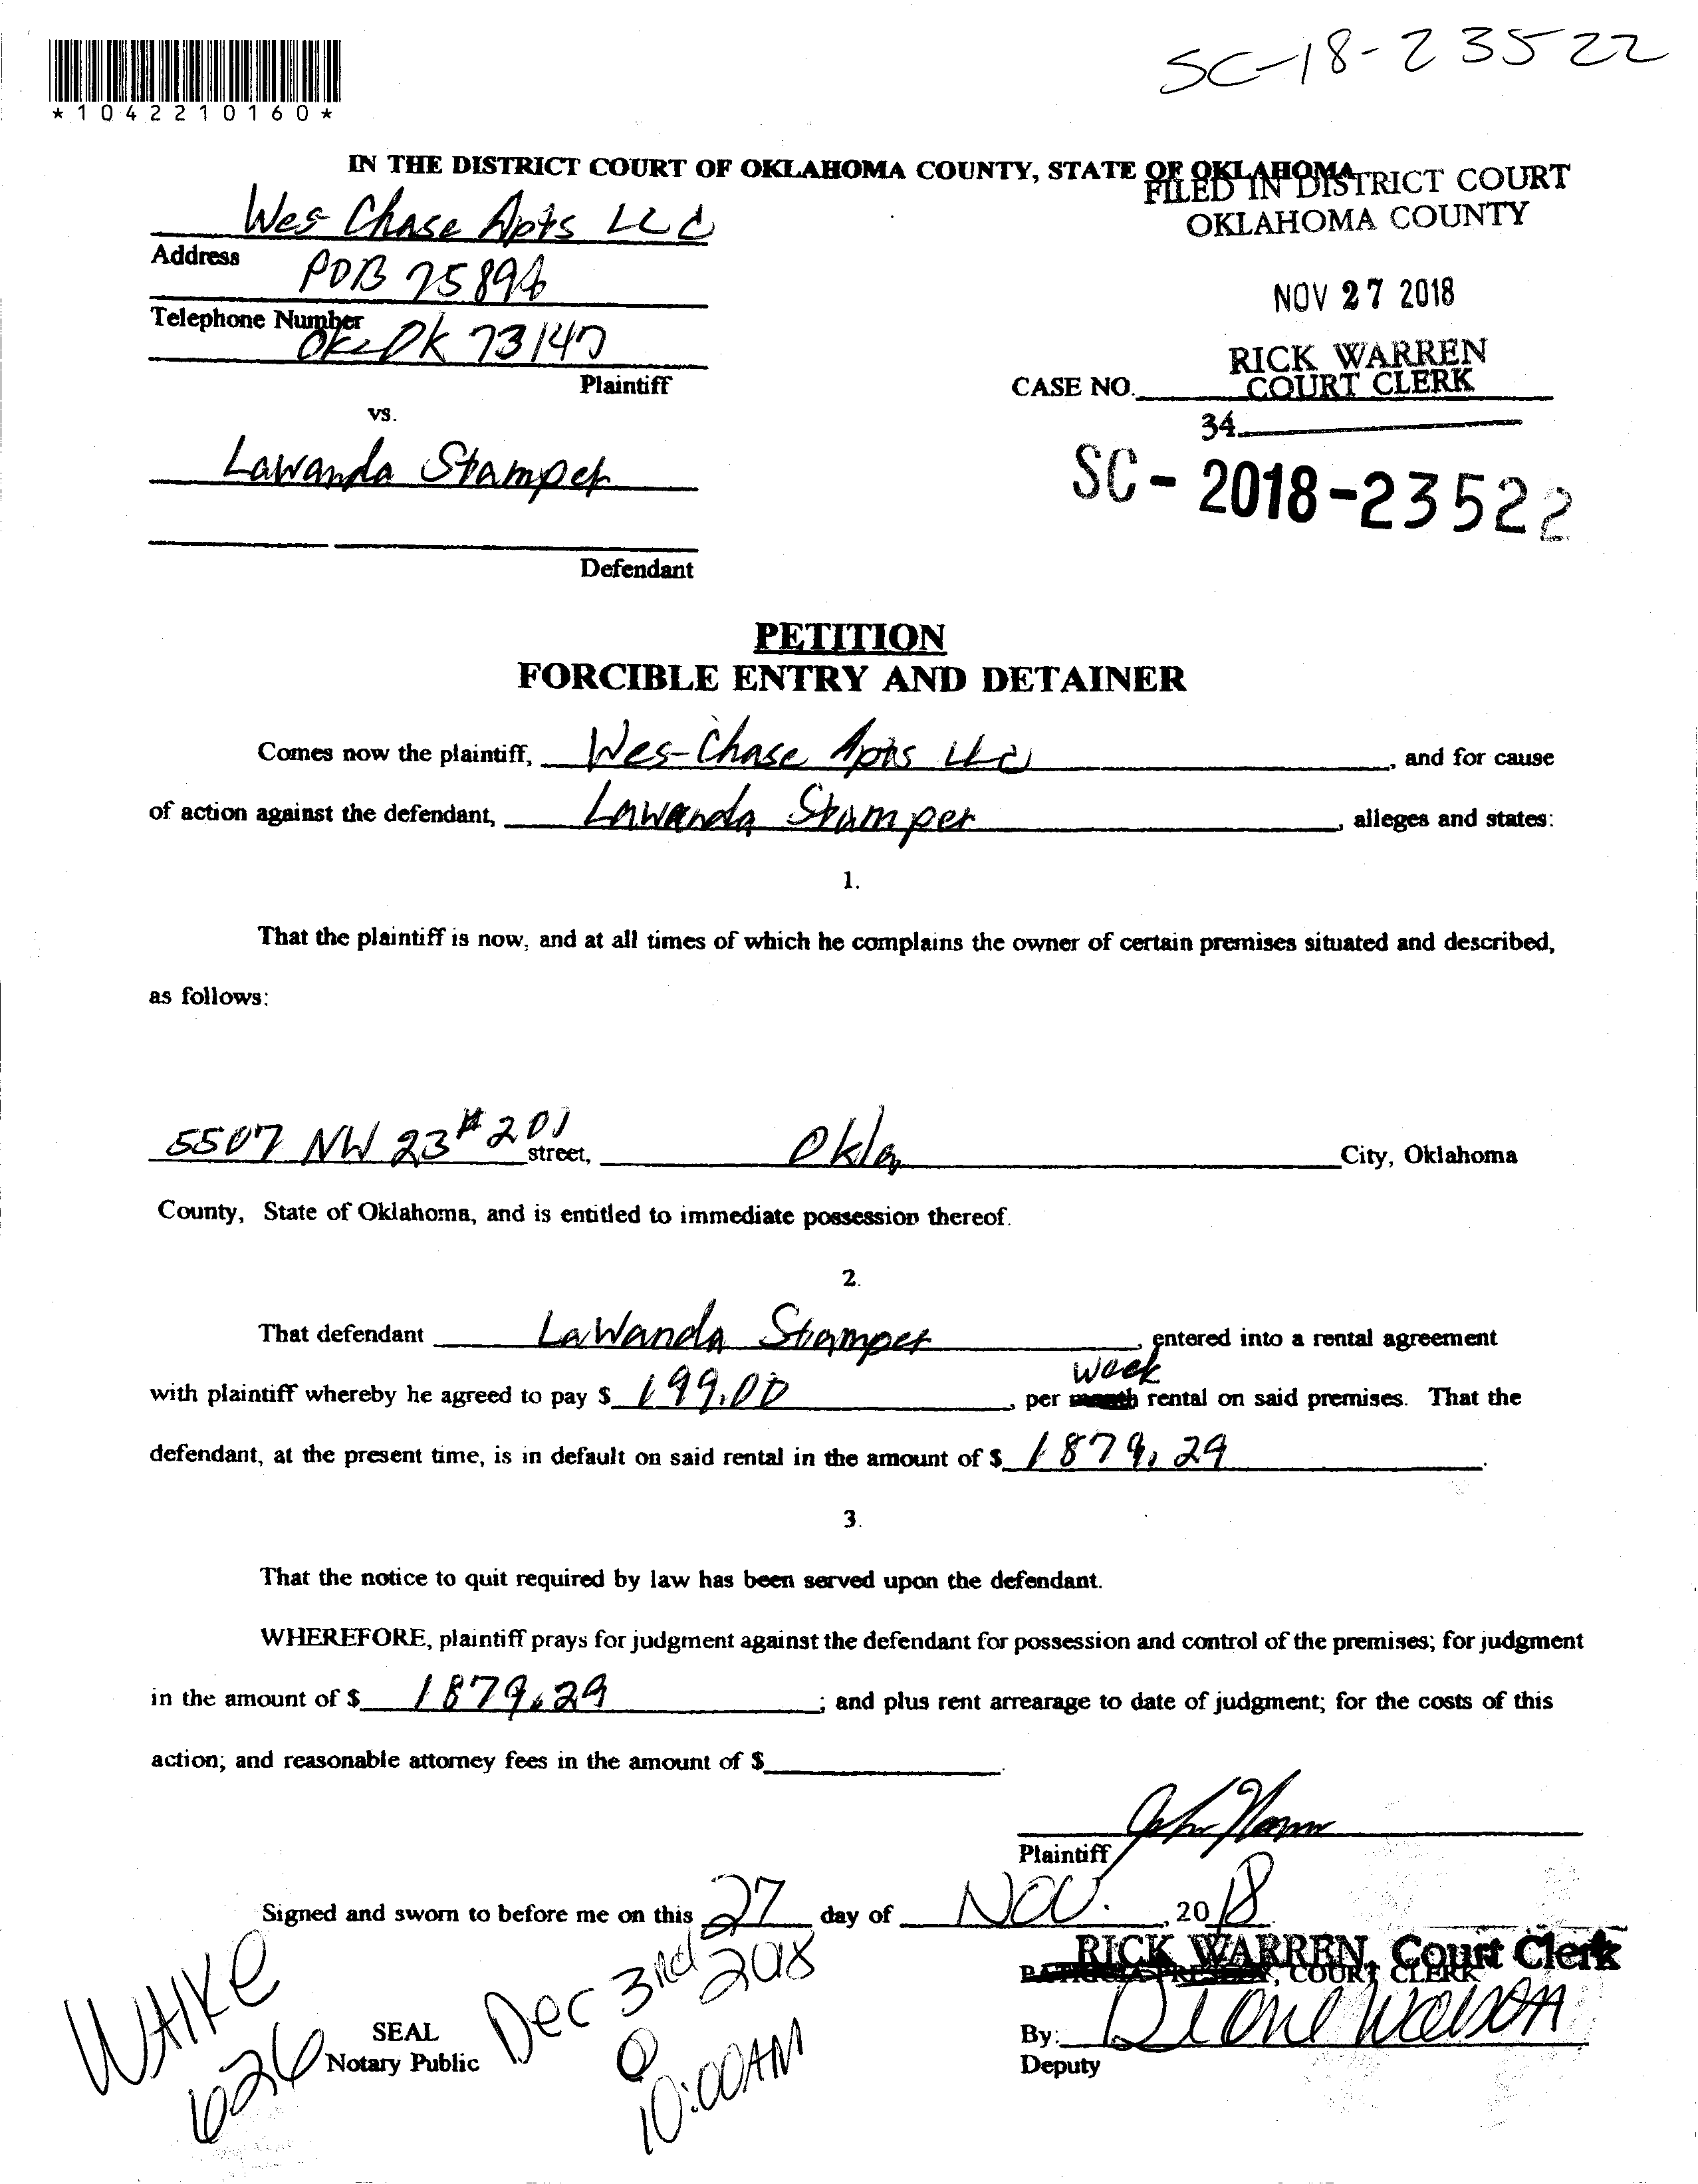 SC-18-23522
*1042210160*
IN THE DISTRICT COURT OF OKLAHOMA COUNTY, STATE OF OKLAHOMA
FILED IN DISTRICT COURT
OKLAHOMA COUNTY
Wes-Chase Apts LLC
Address
POB 75894
NOV 27 2018
Telephone Number
OKC OK 73147
RICK WARREN
COURT CLERK
Plaintiff
CASE NO.
34
vs.
Lawanda Stamper
SC - 2018-23522
Defendant
PETITION
FORCIBLE ENTRY AND DETAINER
Comes now the plaintiff, Wes-Chase Apts LLC, and for cause
of action against the defendant, Lawanda Stamper, alleges and states:
1.
That the plaintiff is now, and at all times of which he complains the owner of certain premises situated and described,
as follows:
5507 NW 23 # 201 street, Okla City, Oklahoma
County, State of Oklahoma, and is entitled to immediate possession thereof.
2.
That defendant LaWanda Stamper, entered into a rental agreement
with plaintiff whereby he agreed to pay $ 199.00, per month week rental on said premises. That the
defendant, at the present time, is in default on said rental in the amount of $ 1879.29.
3.
That the notice to quit required by law has been served upon the defendant.
WHEREFORE, plaintiff prays for judgment against the defendant for possession and control of the premises; for judgment
in the amount of $ 1879.29; and plus rent arrearage to date of judgment; for the costs of this
action; and reasonable attorney fees in the amount of $ .
Plaintiff
Signed and sworn to before me on this 27 day of NOV., 2018
RICK WARREN, Court Clerk
, COURT CLERK
Dec 3rd 2018
@
10:00AM
626
SEAL
Notary Public
By:
Deputy